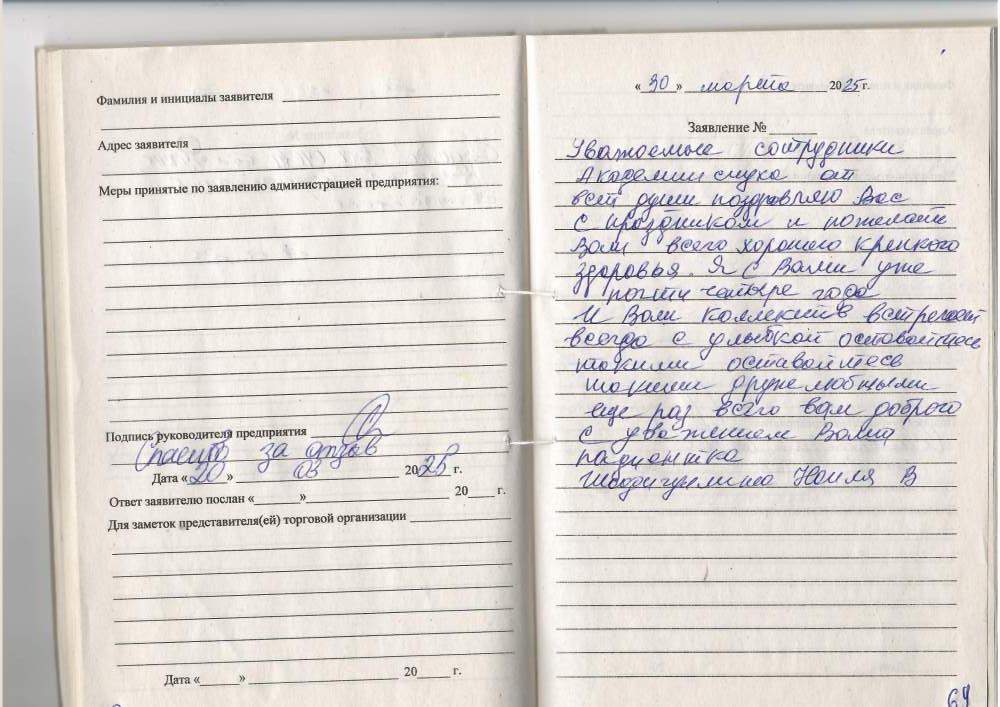 Фамилия и инициалы заявителя
Адрес заявителя
Меры принятые по заявлению администрацией предприятия:
Подпись руководителя предприятия
Спасибо за отзыв
Дата «20» 03 2025 г.
Ответ заявителю послан «» 20 г.
Для заметок представителя(ей) торговой организации
Дата «» 20 г.
«30» марта 2025 г.
Заявление №
Уважаемые сотрудники
Академии слуха от
всей души поздравляю Вас
с праздником и пожелать
Вам всего хорошего крепкого
здоровья. Я с Вами уже
почти четыре года
И Ваш коллектив встречает
всегда с улыбкой оставайтесь
такими оставайтесь
такими дружелюбными
еще раз всего вам доброго
с уважением Ваша
пациентка
Наиля В
69